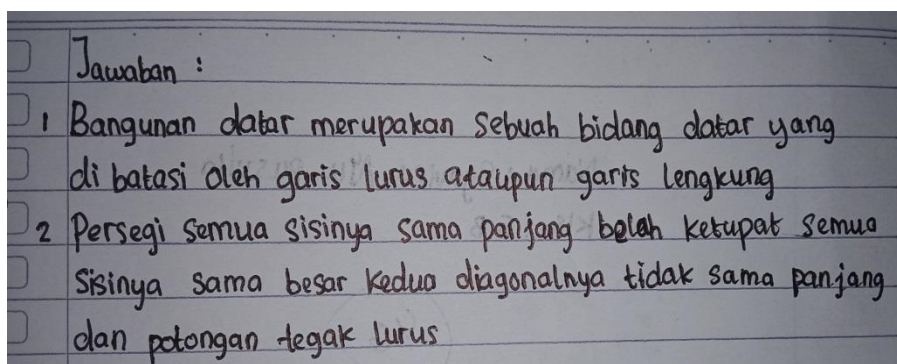 Jawaban :
1 Bangunan datar merupakan sebuah bidang datar yang
di batasi oleh garis lurus ataupun garis lengkung
2 Persegi semua sisinya sama panjang belah ketupat semua
sisinya sama besar kedua diagonalnya tidak sama panjang
dan potongan tegak lurus